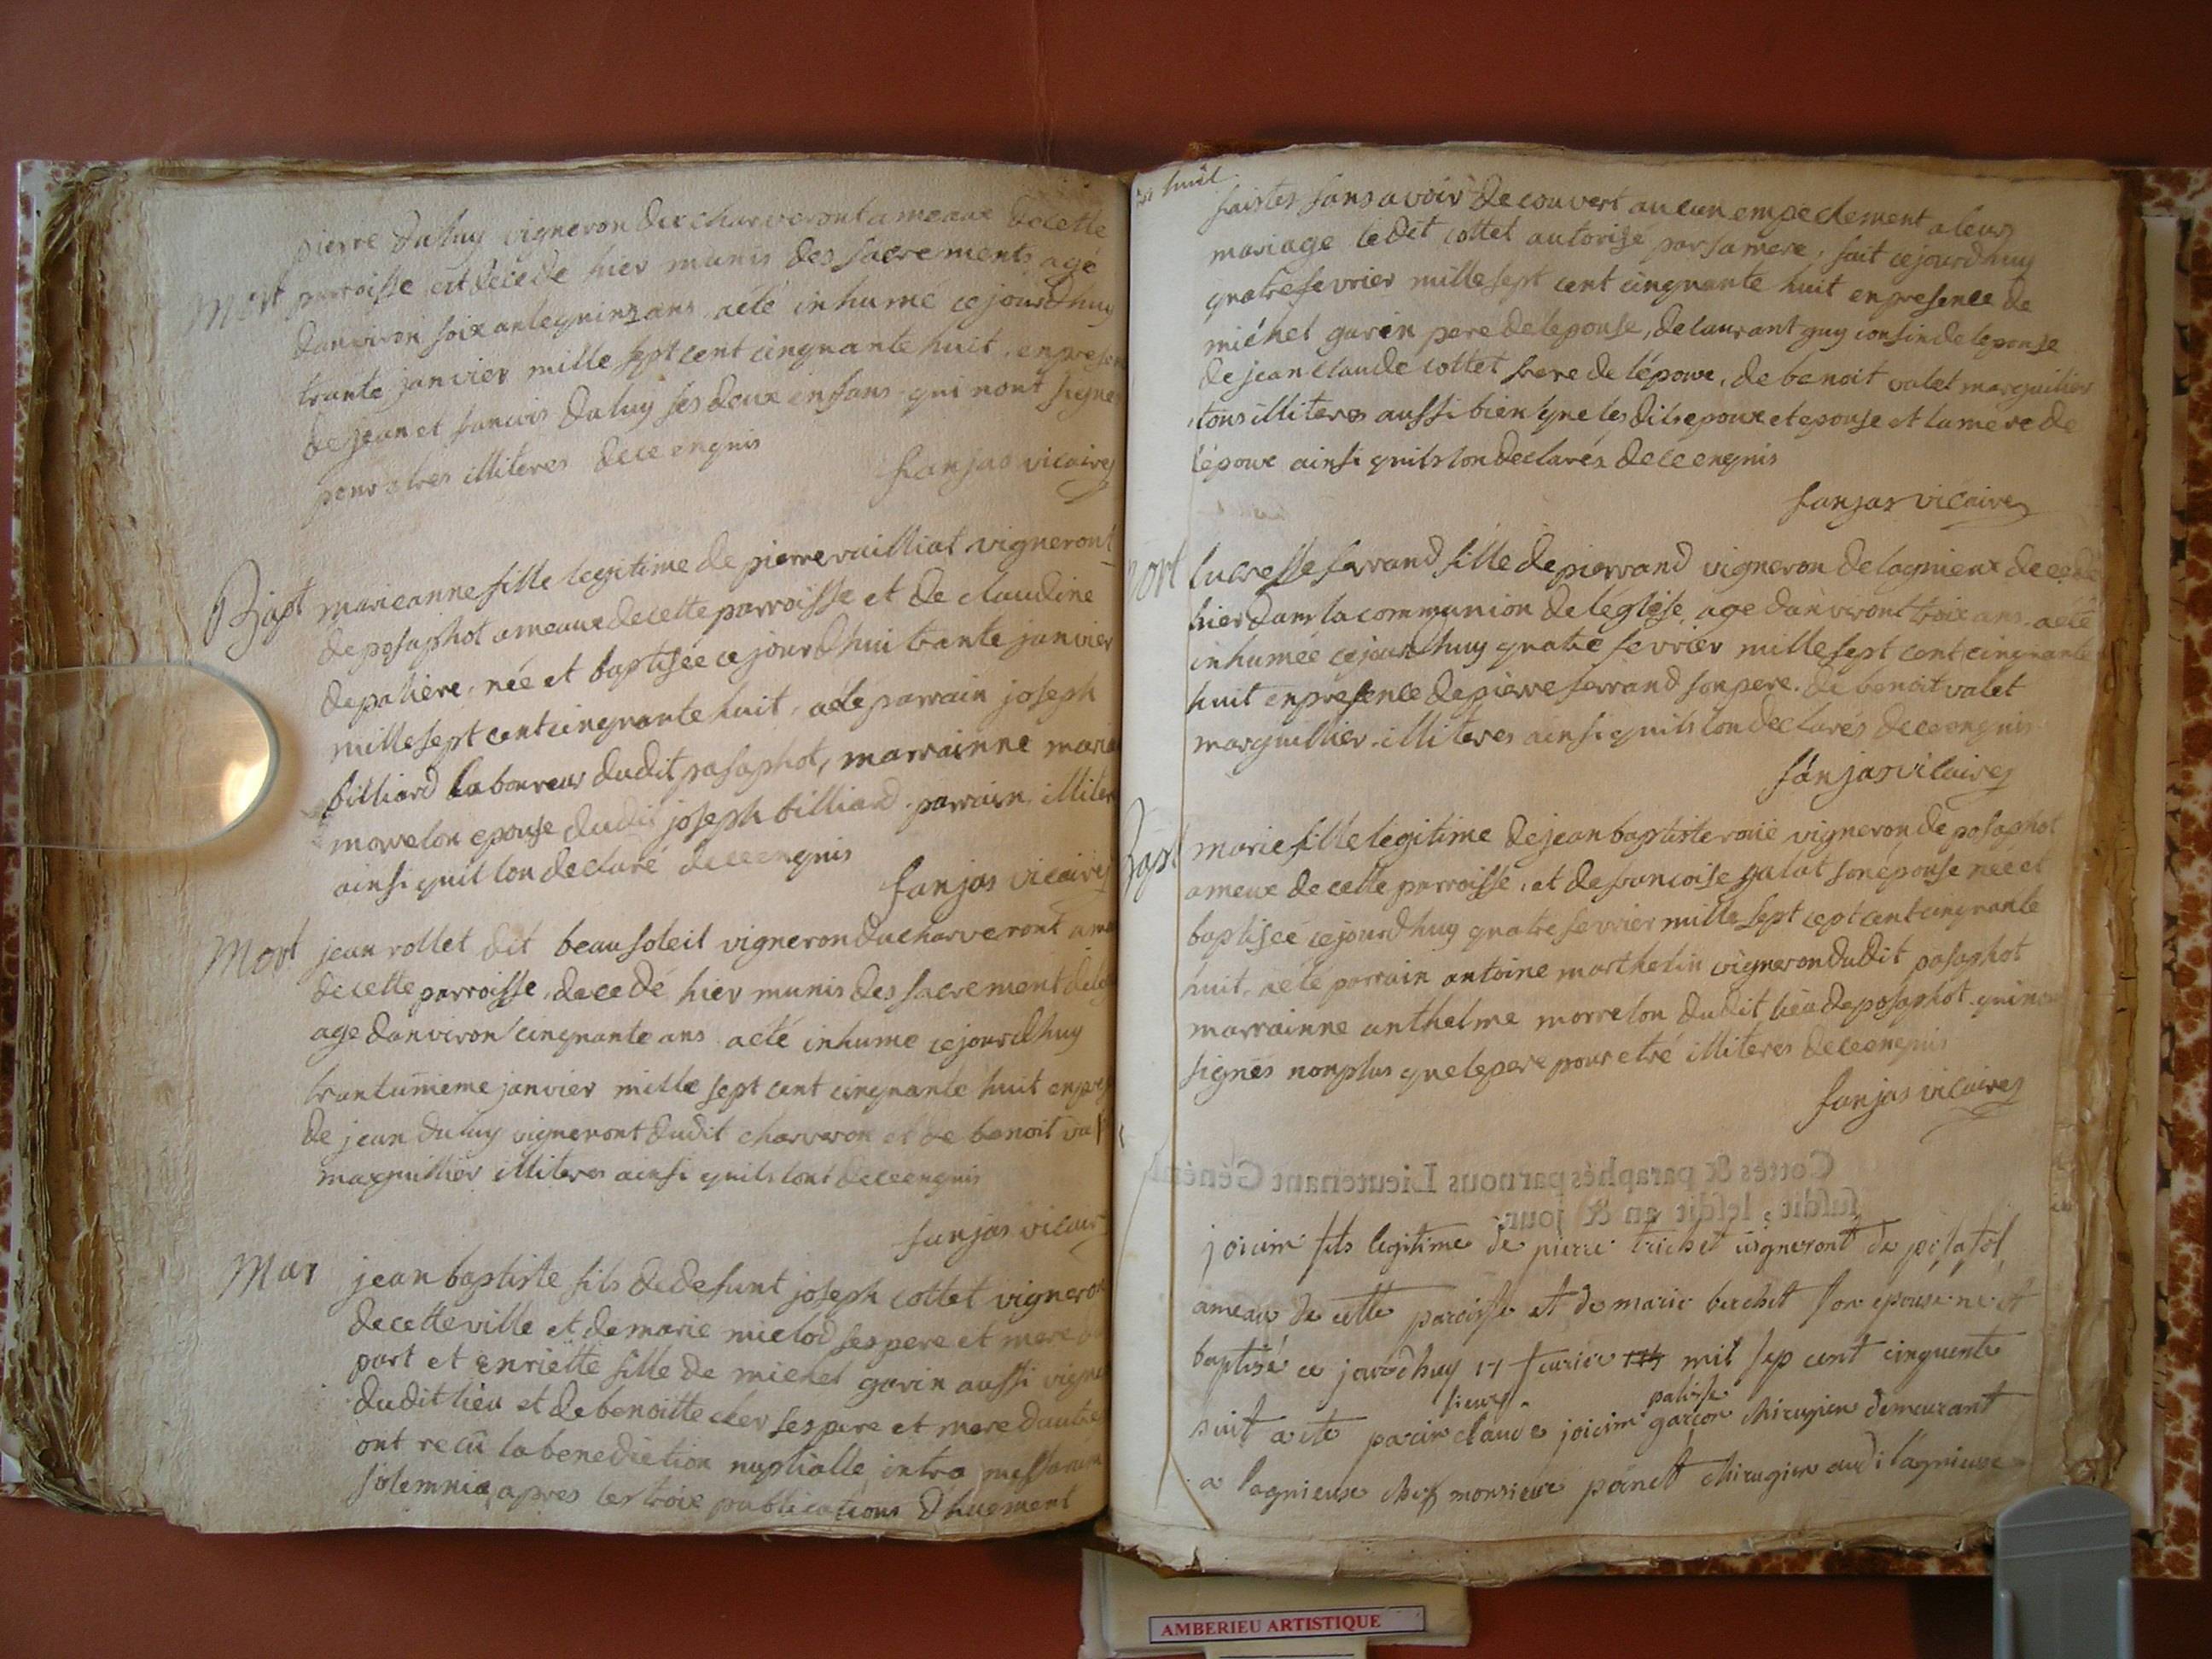 pierre duluy vigneron du charveront ameaux de cette
Mort parroisse est decede hier munis des sacrements agé
danviron soixante quinz ans a eté inhumé ce jourdhuy
trante janvier mille sept cent cinquante huit, en presen
de jean et francois duluy ses deux enfans qui nont signe
pour etres illiteres de ce enquis
fanjas vicaire
Bapt marieanne fille legitime de pierre vailliat vigneront
de posaphot ameaux de cette parroisse et de claudine
depaliere, née et baptisée ce jourdhui trante janvier
mille sept cent cinquante huit, a eté parrain joseph
billiard laboureur dudit posaphot, marrainne marie
morrelon epouse dudit joseph billiard parrain illiter
ainsi quil lon declaré de ce enquis
fanjas vicaire
Mort jean rollet dit beausoleil vigneron du charveront ame
de cette parroisse, decedé hier munis des sacrement
age danviron cinquante ans a eté inhume ce jourdhuy
trantunieme janvier mille sept cent cinquante huit en pres
de jean duluy vigneront dudit charveron et de benoit va
marguillier illiteres ainsi quils lont de ce enquis
fanjas vicair
Mar jean baptiste fils de defunt joseph cottet vigneron
de cette ville et de marie mielod ses pere et mere
part et enriette fille de michel garin aussi vigne
dudit lieu et de benoitte cler ses pere et mere dautre
ont recû la benediction nuptialle intra messarum
solemnia, apres les troix publications dhuement
huit
faistes sans avoir decouvert aucun empeclement a leurs
mariage ledit cottet autorisé par sa mere, fait ce jourdhuy
quatre fevrier mille sept cent cinquante huit en presence de
michel garin pere de lepouse, de laurant guy consin de lepouse
de jean claude cottet frere de lépoux, de benoit valet marguilier
tous illiteres aussi bien que les dits epoux et epouse et la mere de
lépoux ainsi quils lon declarés de ce enquis
fanjas vicaire
Mort lucresse ferrand fille de pierrand vigneron de lagnieux decedé
hier dans la communion de léglise, age danveront troix ans a eté
inhumée ce jourdhuy quatre fevrier mille sept cent cinquante
huit en presence de pierre ferrand son pere. de benoit valet
marguillier illiteres ainsi quils lon declarés de ce enquis
fanjas vicaire
Bapt marie fille legitime de jean baptiste roüe vigneron de posaphot
ameux de cette parroisse, et de francoise galat son epouse née et
baptisée ce jourdhuy quatre fevrier mille sept cept cent cinquante
huit, a eté parrain antoine marthelin vigneron dudit posaphot
marrainne anthelme morrelon dudit lieu de posaphot qui non
signés nonplus que le pere pour etré illiteres de ce enquis
fanjas vicaire
Cottés & paraphés par nous Lieutenant Général
susdit, lesdit an & jour.
joicim fils legitime de pierre trichet vigneront de posafol,
ameau de cette paroisse et de marie berchet son épouse né et
baptisé ce jourdhuy 17 mil sep cent cinquente
sieur palisse
huit a ete parin claude joicim garcon chirugien demeurant
a lagnieuse chez monsieur poinet chirugien audi lagnieuse
AMBERIEU ARTISTIQUE